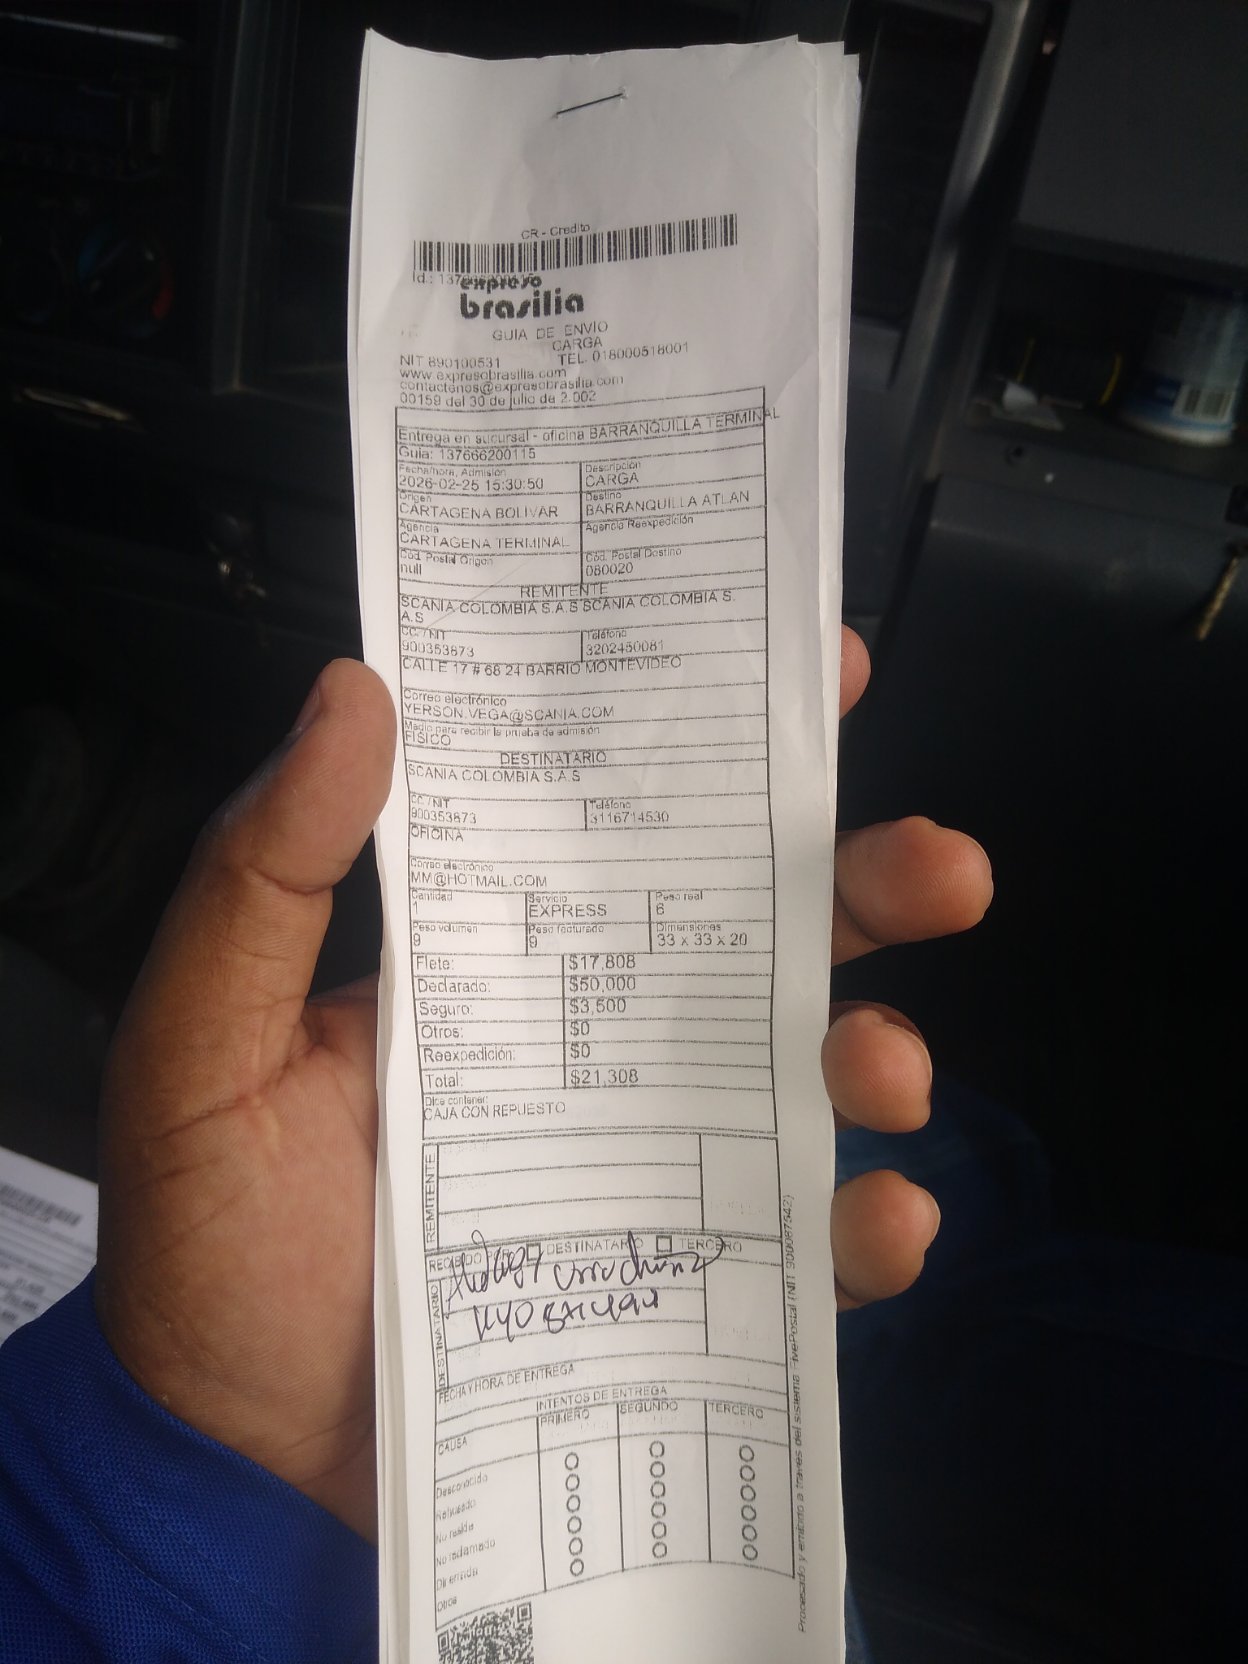 CR - Credito
Id.: 137666200115
expreso
brasilia
GUIA DE ENVIO
CARGA
NIT 890100531 TEL. 018000518001
www.expresobrasilia.com
contactenos@expresobrasilia.com
00159 del 30 de julio de 2.002
Entrega en sucursal - oficina BARRANQUILLA TERMINAL
Guia: 137666200115
Fecha/hora, Admisión Descripción
2026-02-25 15:30:50 CARGA
Origen Destino
CARTAGENA BOLIVAR BARRANQUILLA ATLAN
Agencia Agencia Reexpedición
CARTAGENA TERMINAL
Cód. Postal Origen Cód. Postal Destino
null 080020
REMITENTE
SCANIA COLOMBIA S.A.S SCANIA COLOMBIA S.
A.S
CC / NIT Teléfono
900353873 3202450081
CALLE 17 # 68 24 BARRIO MONTEVIDEO
Correo electrónico
YERSON.VEGA@SCANIA.COM
Medio para recibir la prueba de admisión
FISICO
DESTINATARIO
SCANIA COLOMBIA S.A.S
CC / NIT Teléfono
900353873 3116714530
OFICINA
Correo electrónico
MM@HOTMAIL.COM
Cantidad Servicio Peso real
1 EXPRESS 6
Peso volumen Peso facturado Dimensiones
9 9 33 x 33 x 20
Flete: $17,808
Declarado: $50,000
Seguro: $3,500
Otros: $0
Reexpedición: $0
Total: $21,308
Dice contener:
CAJA CON REPUESTO
REMITENTE
RECIBIDO POR DESTINATARIO TERCERO
DESTINATARIO
FECHA Y HORA DE ENTREGA
INTENTOS DE ENTREGA
CAUSA PRIMERO SEGUNDO TERCERO
Desconocido
Rehusado
No reside
No reclamado
Dir errada
Otros
Procesado y emitido a través del sistema FivePostal (NIT 900087542)